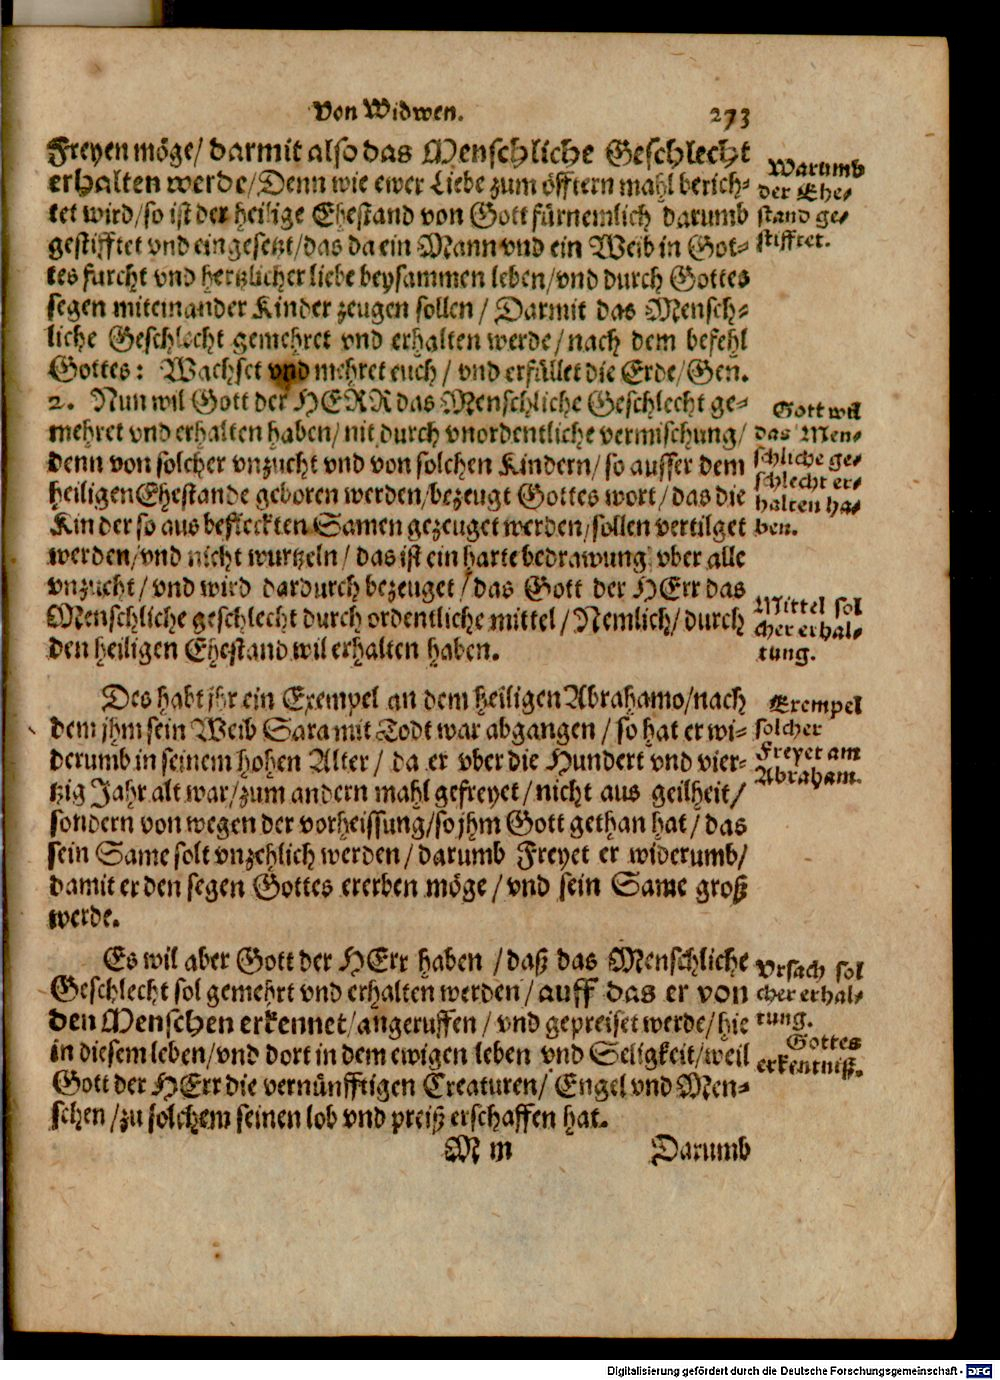 Von Widwen. 273
Freyen möge/ darmit also das Menschliche Geschlecht
erhalten werde/Denn wie ewer Liebe zum öfftern mahl berich-
tet wird/so ist der heilige Ehestand von Gott fürnemlich darumb
gestifftet vnd eingesetzt/das da ein Mann vnd ein Weib in Got-
tes furcht vnd hertzlicher liebe beysammen leben/vnd durch Gottes
segen miteinander Kinder zeugen sollen/ Darmit das Mensch-
liche Geschlecht gemehret vnd erhalten werde/nach dem befehl
Gottes: Wachset vnd mehret euch/ vnd erfüllet die Erde/Gen.
2. Nun wil Gott der HERR das Menschliche Geschlecht ge-
mehret vnd erhalten haben/ nit durch vnordentliche vermischung/
denn von solcher vnzucht vnd von solchen Kindern/ so ausser dem
heiligen Ehestande geboren werden/bezeugt Gottes wort/das die
Kinder so aus befleckten Samen gezeuget werden/sollen vertilget
werden/vnd nicht wurtzeln/das ist ein harte bedrawung vber alle
vnzucht/vnd wird dardurch bezeuget/das Gott der HErr das
Menschliche geschlecht durch ordentliche mittel/Nemlich/durch
den heiligen Ehestand wil erhalten haben.
Warumb
der Ehe-
stand ge-
stifftet.
Gott wil
das Men-
schliche ge-
schlecht er-
halten ha-
ben.
Mittel sol
cher erhal-
tung.
Des habt jhr ein Exempel an dem heiligen Abrahamo/nach
dem jhm sein Weib Sara mit Todt war abgangen/so hat er wi-
derumb in seinem hohen Alter/ da er vber die Hundert vnd vier-
tzig Jahr alt war/zum andern mahl gefreyet/nicht aus geilheit/
sondern von wegen der vorheissung/so jhm Gott gethan hat/das
sein Same solt vnzehlich werden/darumb Freyet er widerumb/
damit er den segen Gottes ererben möge/vnd sein Same groß
werde.
Exempel
solcher
Freyet am
Abraham.
Es wil aber Gott der HErr haben/daß das Menschliche
Geschlecht sol gemehrt vnd erhalten werden/auff das er von
den Menschen erkennet/angeruffen/vnd gepreiset werde/hie
in diesem leben/vnd dort in dem ewigen leben vnd Seligkeit/weil
Gott der HErr die vernünfftigen Creaturen/ Engel vnd Men-
schen/zu solchem seinen lob vnd preiß erschaffen hat.
Vrsach sol
cher erhal-
tung.
Gottes
erkentniß.
M m Darumb
Digitalisierung gefördert durch die Deutsche Forschungsgemeinschaft - DFG